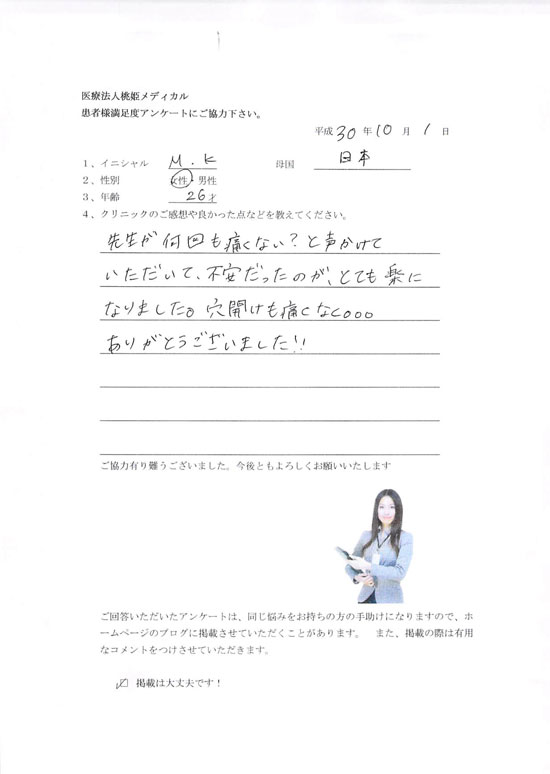 医療法人桃姫メディカル
患者様満足度アンケートにご協力下さい。
平成 30 年 10 月 1 日
1、イニシャル M.K 母国 日本
2、性別 女性・男性
3、年齢 26才
4、クリニックのご感想や良かった点などを教えてください。
先生が何回も痛くない?と声かけて
いただいて、不安だったのが、とても楽に
なりました。穴開けも痛くなく。。。
ありがとうございました!!
ご協力有り難うございました。今後ともよろしくお願いいたします
ご回答いただいたアンケートは、同じ悩みをお持ちの方の手助けになりますので、ホ
ームページのブログに掲載させていただくことがあります。 また、掲載の際は有用
なコメントをつけさせていただきます。
☑ 掲載は大丈夫です!